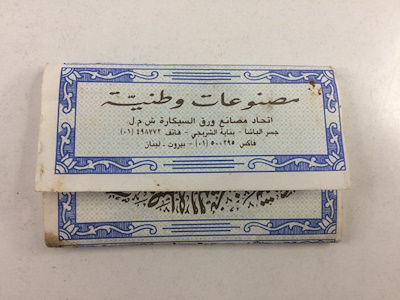 مصنوعات وطنيّة
اتحاد مصانع ورق السيكارة ش.م.ل
جسر الباشا - بناية الشريجي - هاتف ٤٩٨٧٧٢ (٠١)
فاكس ٥٠٠٢٩٥ (٠١) - بيروت - لبنان